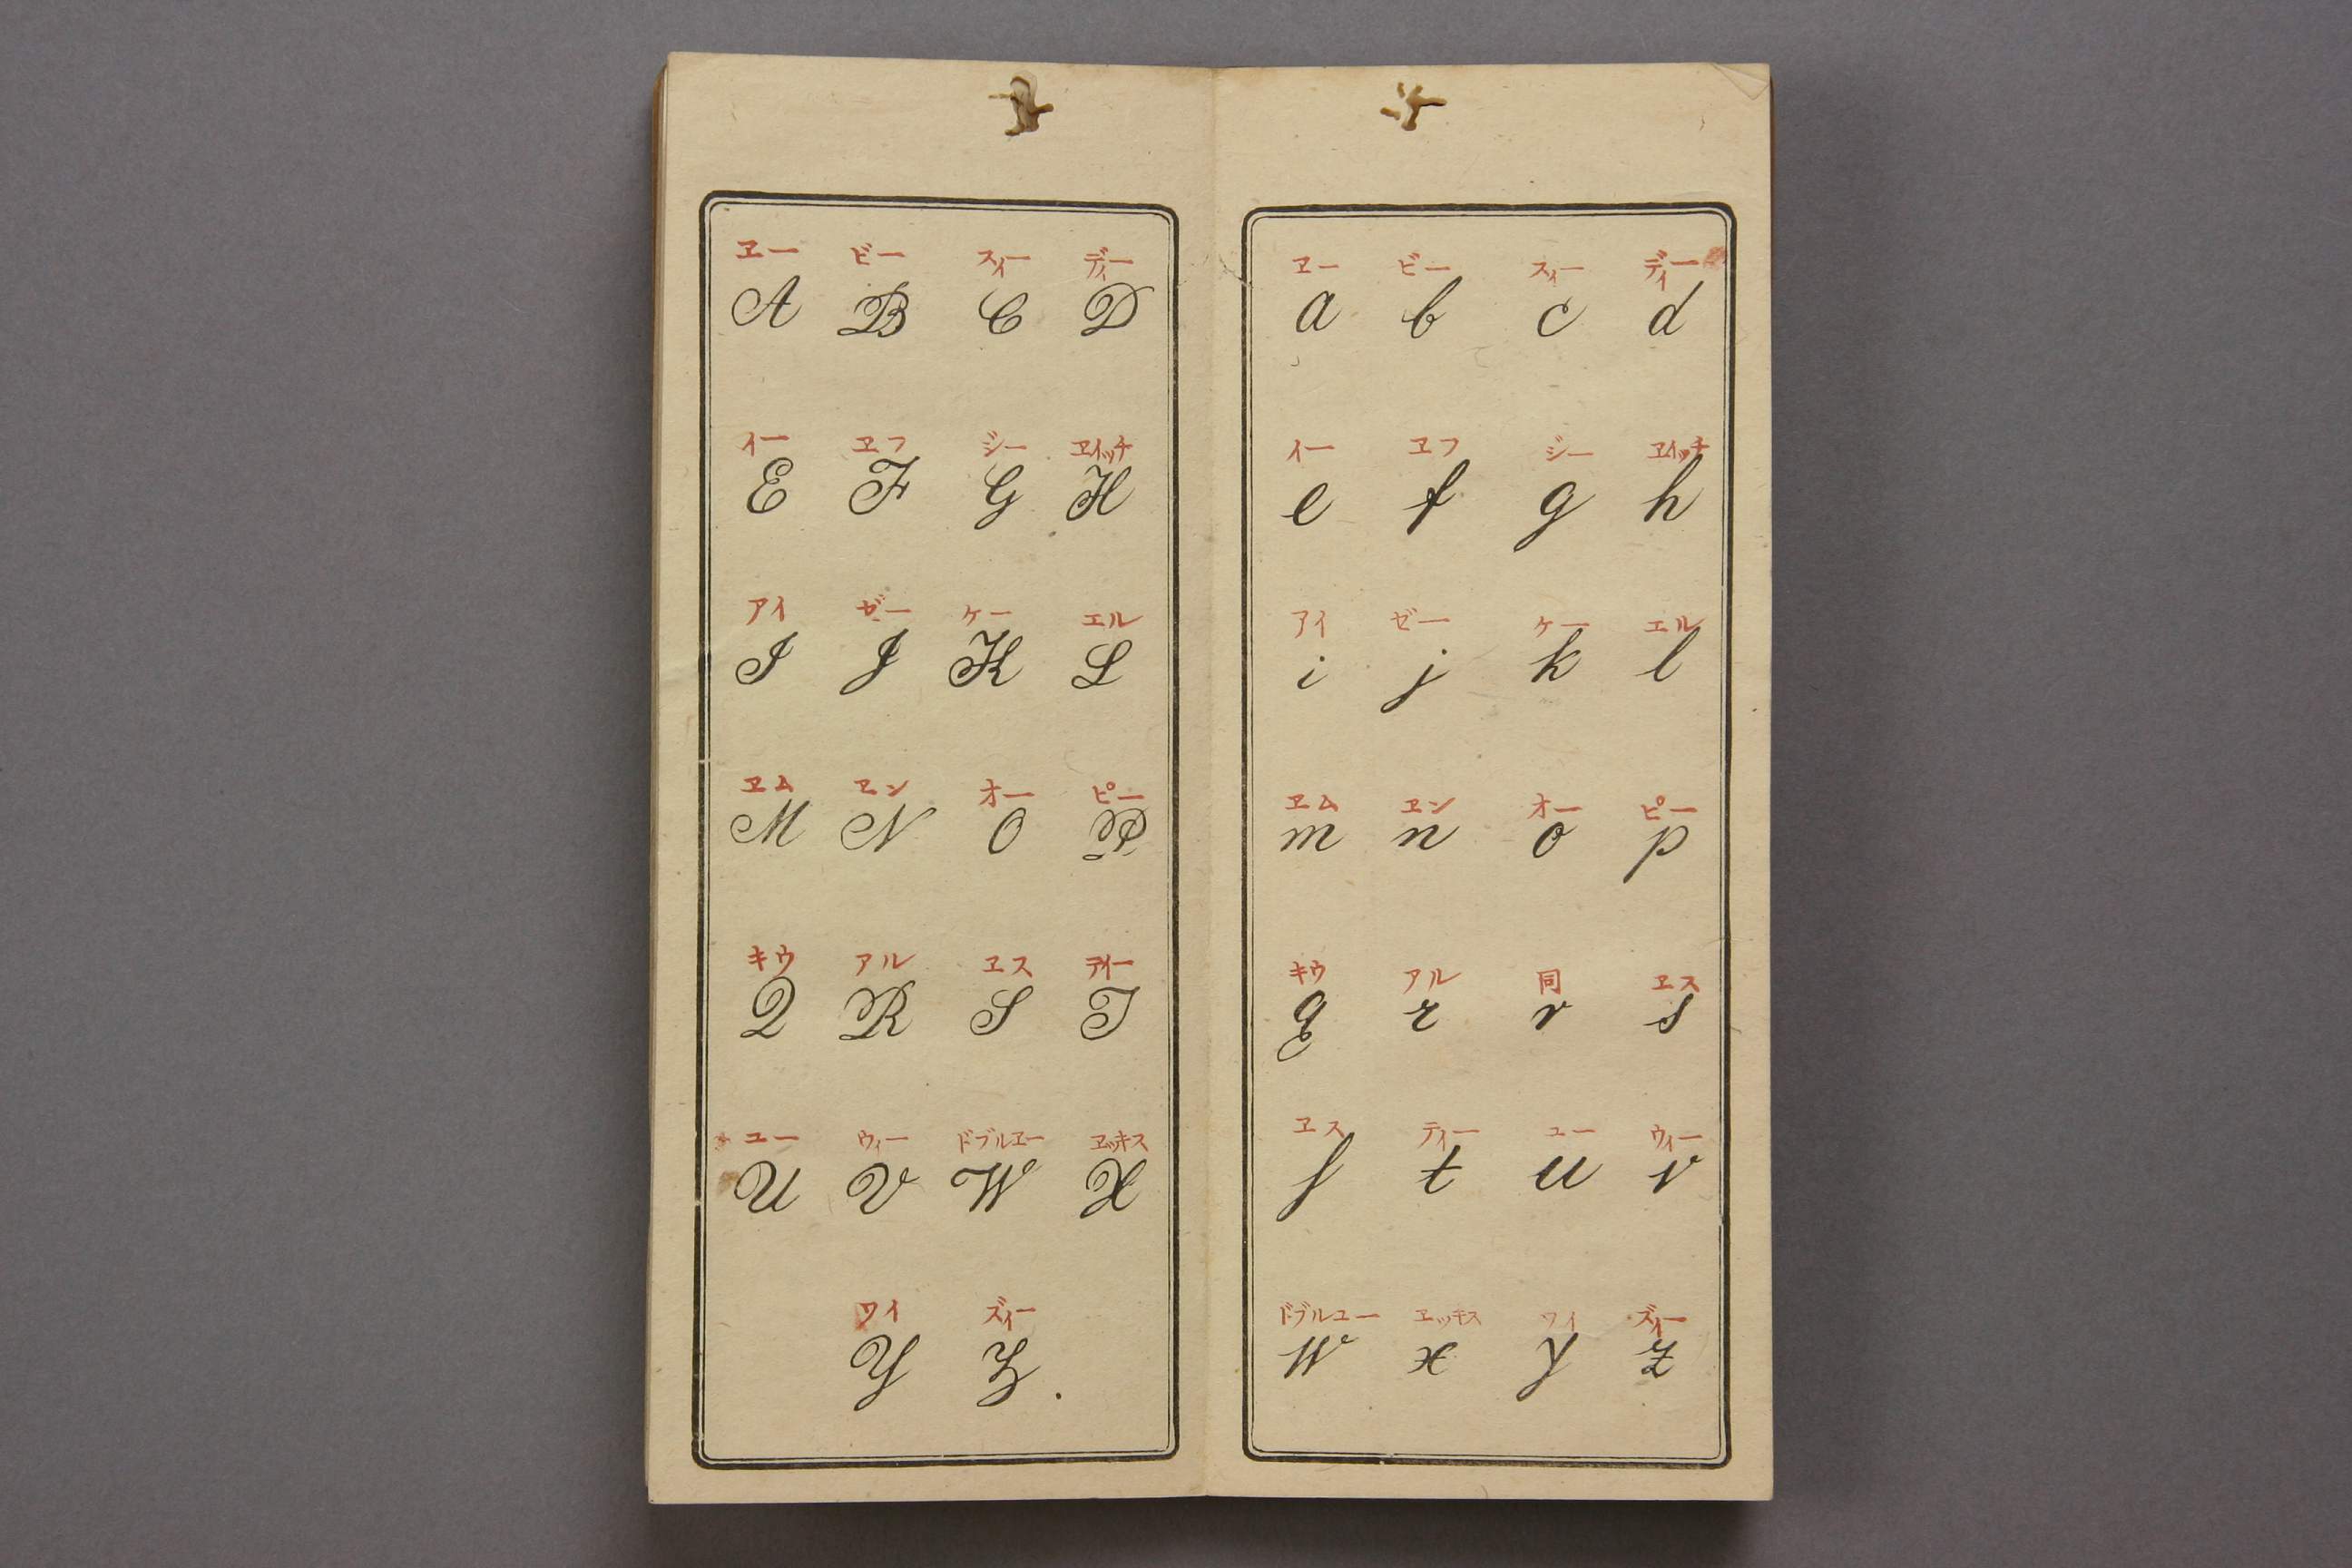 ヱー ビー スィー ディー
A B C D
イー ヱフ ジー ヱイッチ
E F G H
アイ ゼー ケー エル
I J K L
ヱム ヱン オー ピー
M N O P
キウ アル ヱス テイー
Q R S T
ユー ウィー ドブルヱー ヱッキス
U V W X
ワイ ズィー
Y Z.
ヱー ビー スィー ディー
a b c d
イー ヱフ ジー ヱイッチ
e f g h
アイ ゼー ケー エル
i j k l
ヱム ヱン オー ピー
m n o p
キウ アル 同 ヱス
q r r s
ヱス ティー ユー ウィー
ſ t u v
ドブルユー ヱッキス ワイ ズィー
w x y z